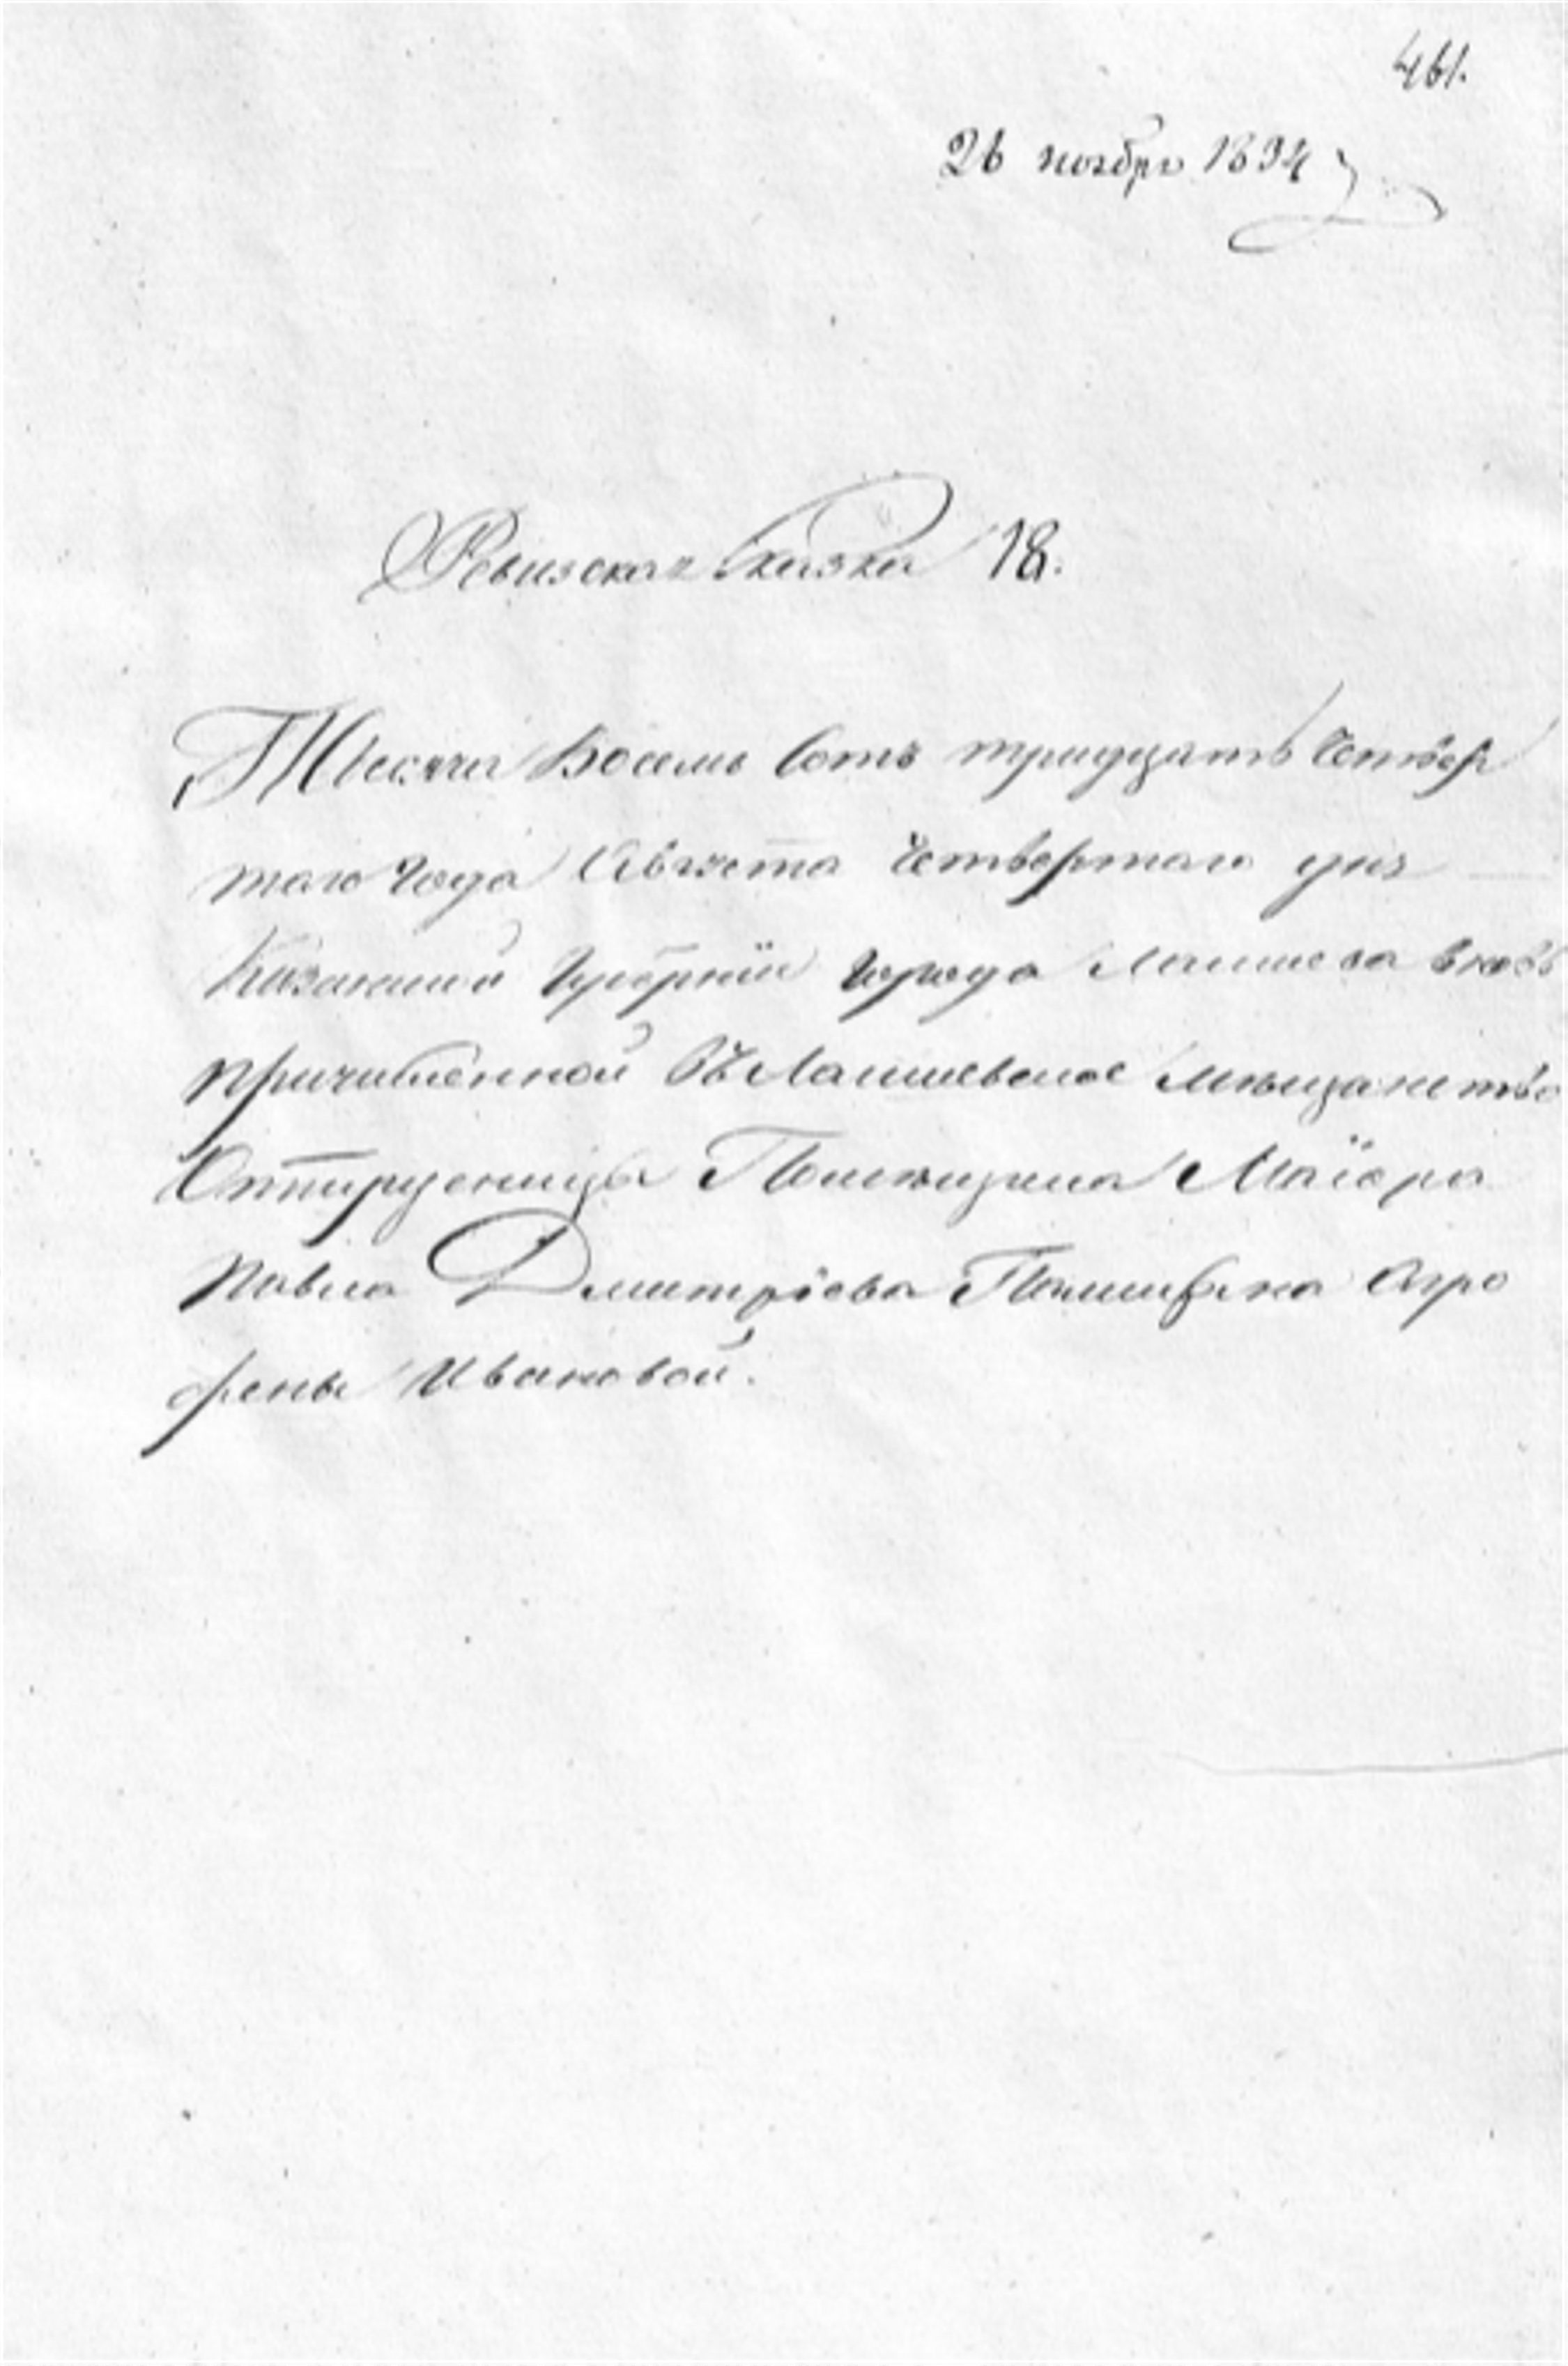 461.
26 ноября 1834
Ревизская Сказка 18.
Тысяча Восемь Сотъ тридцать Четвер
таго Года Августа Четвертаго дня
Казанской Губернїи города Лаишева вновь
причисленной Въ Лаишевское мѣщанство
Отпущенницы Помѣщика Маїора
Павла Дмитрїева Агро
фены Ивановой.